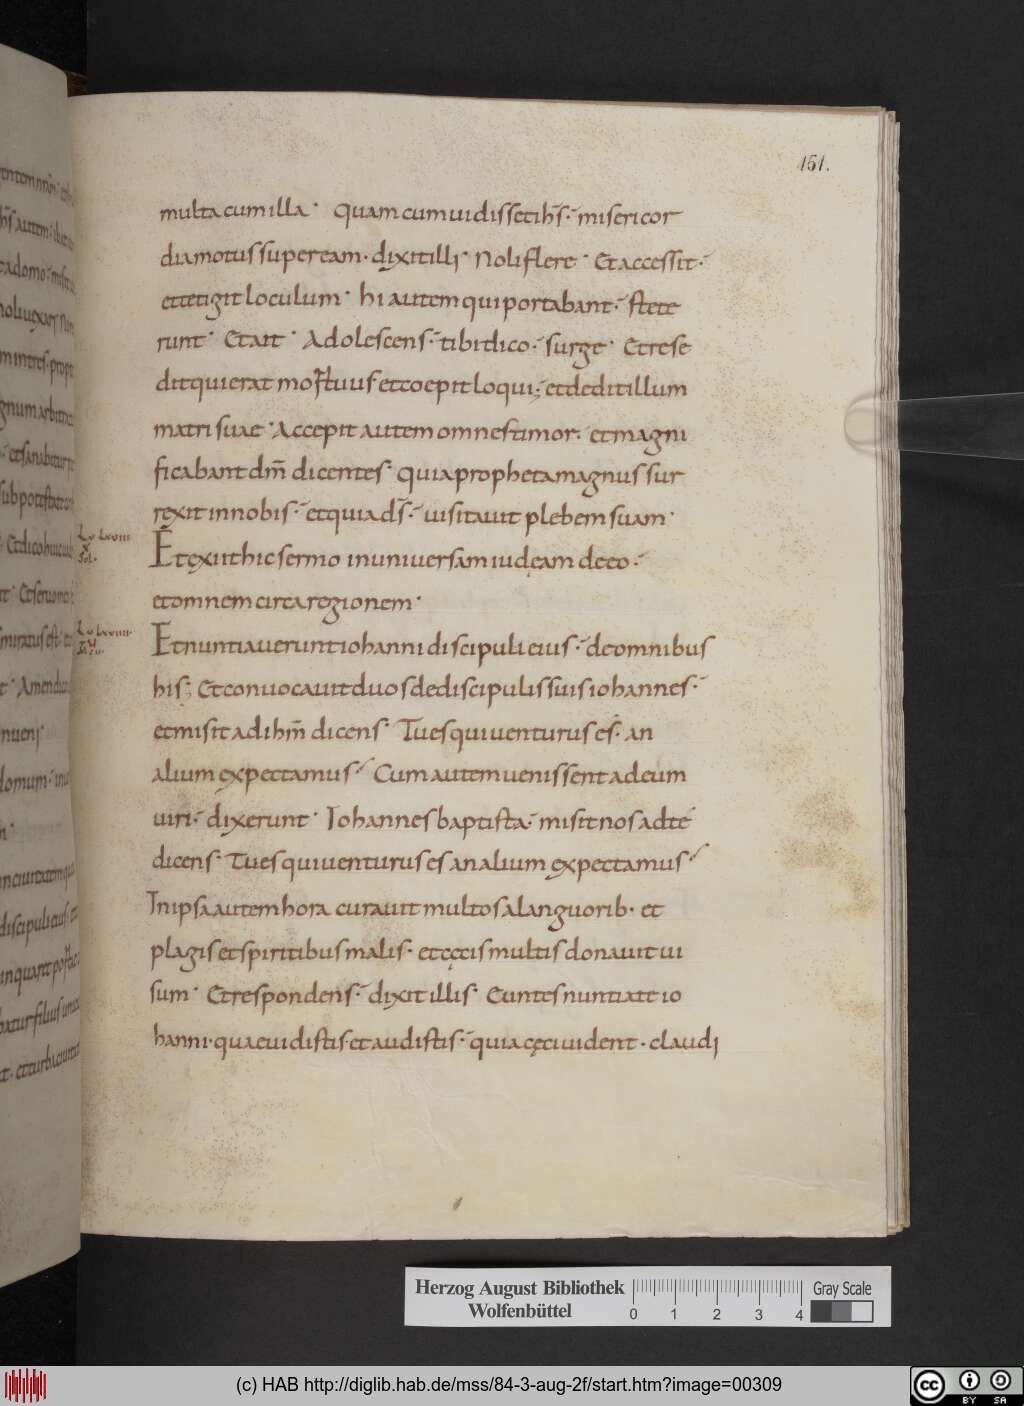 151.
multa cum illa · Quam cum uidisset ih̅s · misericor
dia motus super eam · dixit illi · Noli flere · Et accessit ·
et tetigit loculum · hi autem qui portabant · stete
runt · Et ait · Adolescens · tibi dico · surge · Et rese
dit qui erat mortuus et coepit loqui ; et dedit illum
matri suae · Accepit autem omnes timor · et magni
ficabant dm̅ dicentes · Quia propheta magnus sur
rexit in nobis · et quia ds̅ · uisitauit plebem suam ·
Et exiit hic sermo in uniuersam iudęam de eo ·
et omnem circa regionem ·
Et nuntiauerunt iohanni discipuli eius · de omnibus
his ; Et conuocauit duos de discipulis suis iohannes ·
et misit ad ihm̅ dicens · Tu es qui uenturus es · an
alium expectamus · Cum autem uenissent ad eum
uiri · dixerunt · Iohannes baptista · misit nos ad te
dicens · Tu es qui uenturus es an alium expectamus
In ipsa autem hora curauit multos a languorib · et
plagis et spiritibus malis · et cęcis multis donauit ui
sum · Et respondens · dixit illis · Euntes nuntiate io
hanni · quae uidistis · et audistis · quia cęci uident · claudi
Herzog August Bibliothek
Wolfenbüttel
0 1 2 3 4
Gray Scale
(c) HAB http://diglib.hab.de/mss/84-3-aug-2f/start.htm?image=00309
cc BY SA